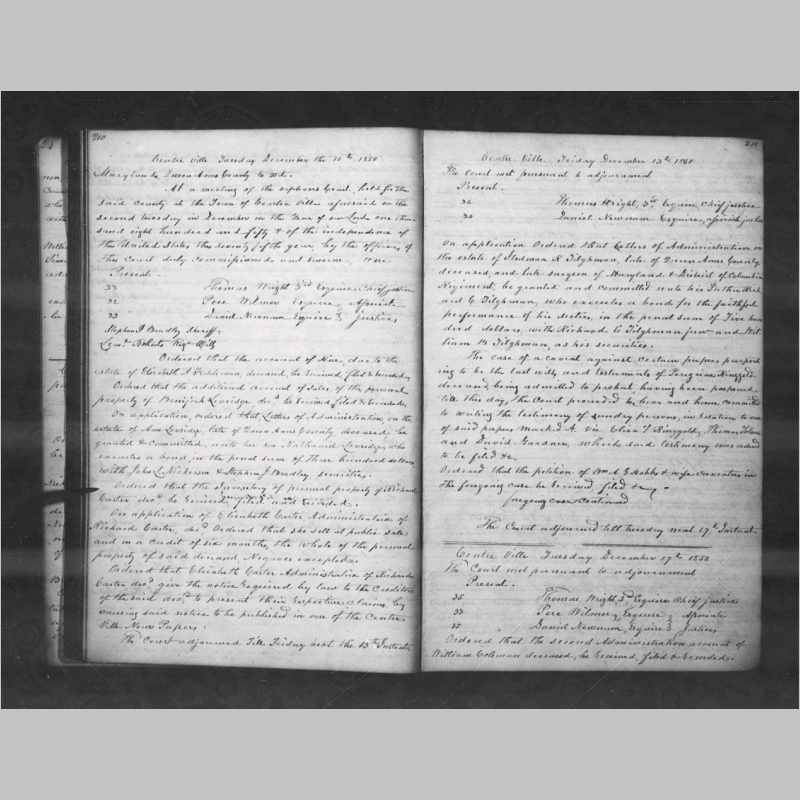 210
Centre Ville Tuesday December the 10th 1850
Maryland, Queen Anns County to wit.
At a meeting of the orphans Court, held for the
said County at the Town of Centre Ville aforesaid on the
second tuesday in December in the Year of our Lord one thou
sand eight hundred and fifty & of the independence of
the United States the seventy fifth year, by the officers of
this Court duly commissioned and sworn, were
Present.
33 Thomas Wright 3rd Esquire Chief justice
32 Pere Wilmer Esquire, Associate
33 Daniel Newnam Esquire } Justices
Stephen J Bradley Sheriff,
Ordered that the account of due to the
estate of Elizabeth deceased, be received, filed & recorded
Ordered that the additional account of sales of the personal
property of Benijah Loveridge decd be received filed & recorded.
On application, ordered that Letters of Administration, on the
estate of Ann Loveridge late of Queen Anns County deceased, be
granted & committed, unto her son Nathaniel Loveridge, who
executes a bond, in the penal sum of three hundred dollars
with John L. Nickerson & Stephen J Bradley securities.
Ordered that the Inventory of personal property of Richard
Carter decd be received filed and recorded.
On application of Elizabeth Carter Administratrix of
Richard Carter, decd Ordered that she sell at public sale
and on a credit of six months, the whole of the personal
property of said deceased Negroes excepted.
Ordered that Elizabeth Carter Administratrix of Richard
Carter decd give the notice required by law to the Creditors
of the said decd to present their Claims, by
causing said notice to be published in one of the Centre
Ville News Papers.
The Court adjourned Till Friday next the 13th Instant
211
Centre Ville Friday December 13th 1850
The Court met pursuant to adjournment
Present.
Thomas Wright, 3rd Esquire, Chief justice
Daniel Newnam Esquire, associate justice
On application Ordered that Letters of Administration on
the estate of R Tilghman, late of Queen Anns County
deceased, and late surgeon of Maryland & District of Columbia
Regiment, be granted and committed unto his Father Rich
ard C Tilghman, who executes a bond for the faithful
performance of his duties, in the penal sum of five hun
dred dollars, with Richard C Tilghman junr and Wil
liam H Tilghman, as his securities.
The case of a caveat against certain papers purport
ing to be the last will and testaments of Peregrine Ringgold
deceased, being admitted to probat having been postponed
till this day, the Court proceeded to hear and have committed
to writing the testimony of sundry persons, in relation to one
of said papers marked A. Viz. Ringgold, Thomas
and David Gardner, which said testimony was ordered
to be filed &c.
Ordered that the petition of Wm & wife executrix in
the foregoing case be received filed &c
foregoing case Continued
The Court adjourned till tuesday next 17th Instant
Centre Ville Tuesday December 17th 1850
The Court met pursuant to adjournment
Present.
35 Thomas Wright 3rd Esquire Chief justice
33 Pere Wilmer, Esquire, Associate
Daniel Newnam, Esquire } Justices
Ordered that the second Administration account of
William Coleman deceased, be received, filed & recorded.